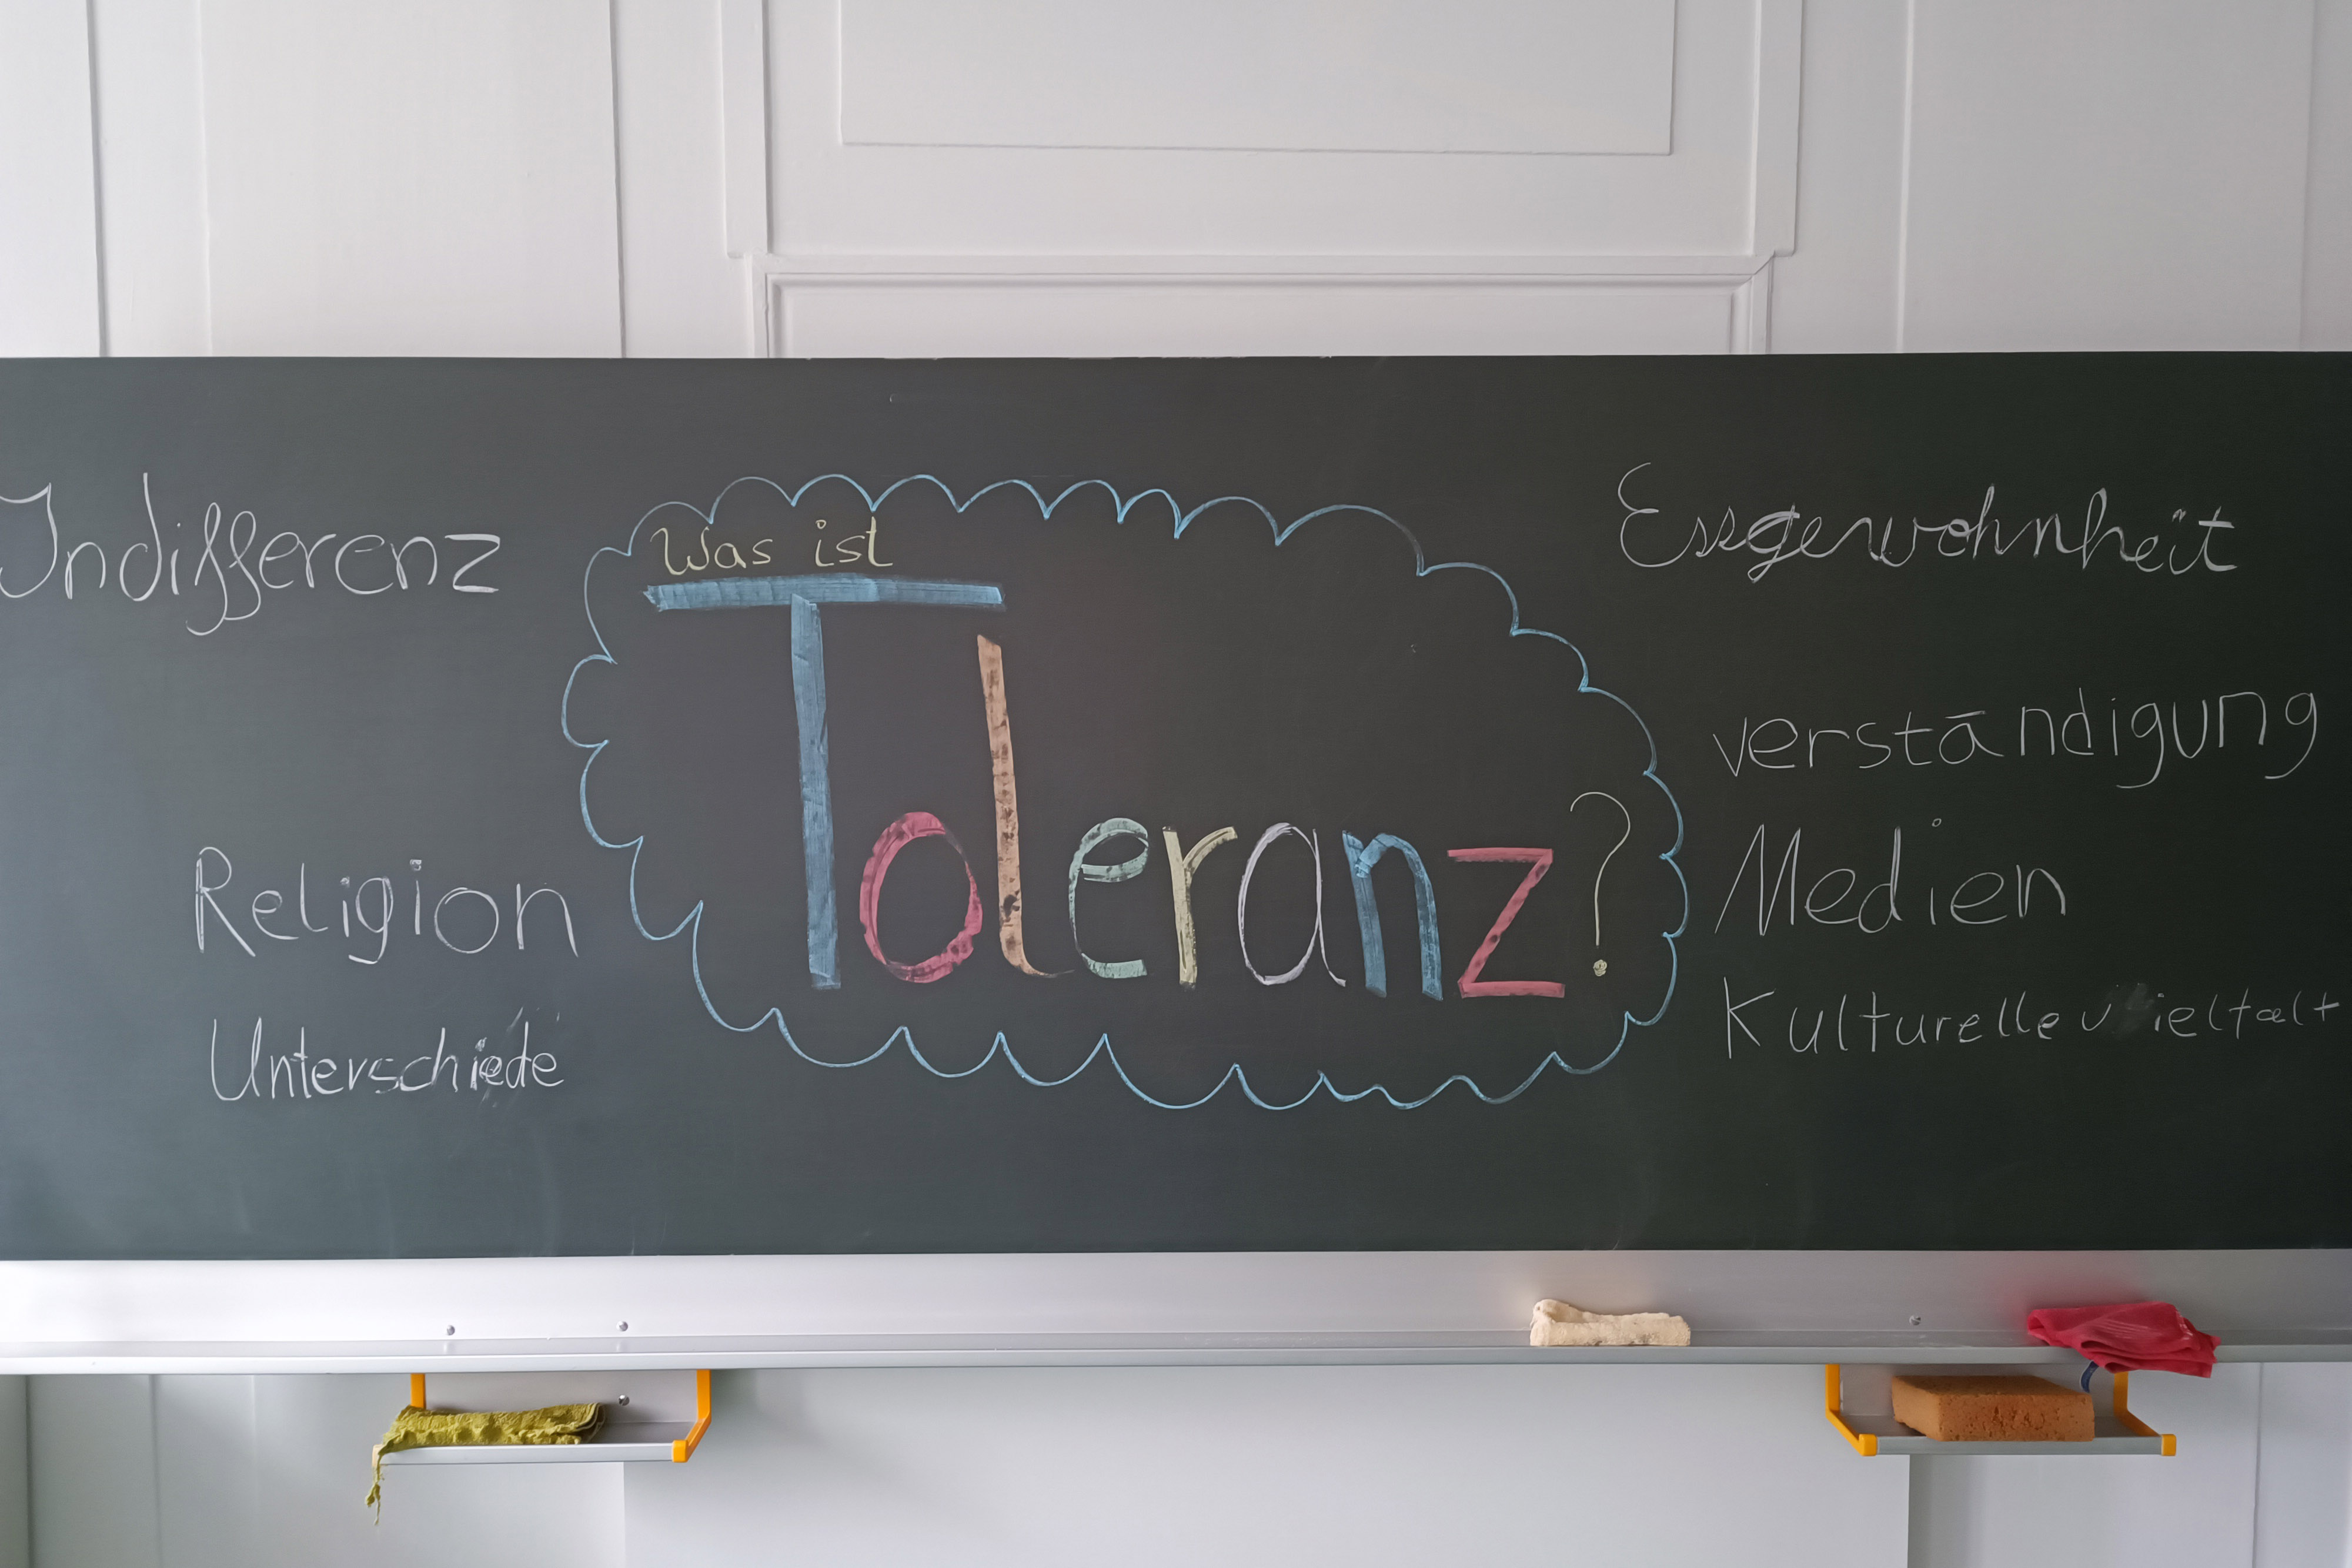 Indifferenz
Religion
Unterschiede
Was ist
Toleranz?
Essgewohnheit
verständigung
Medien
Kulturelle vielfalt